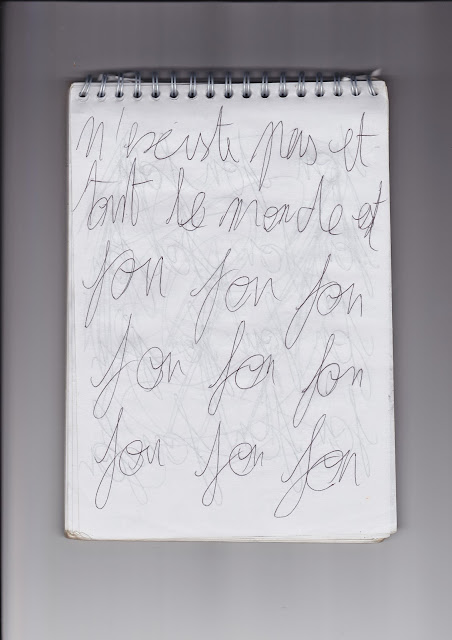 n'existe pas et
tout le monde est
fou fou fou
fou fou fou
fou fou fou